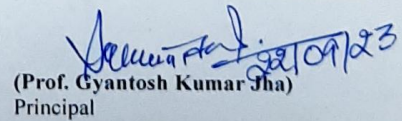 22/09/23
(Prof. Gyantosh Kumar Jha)
Principal